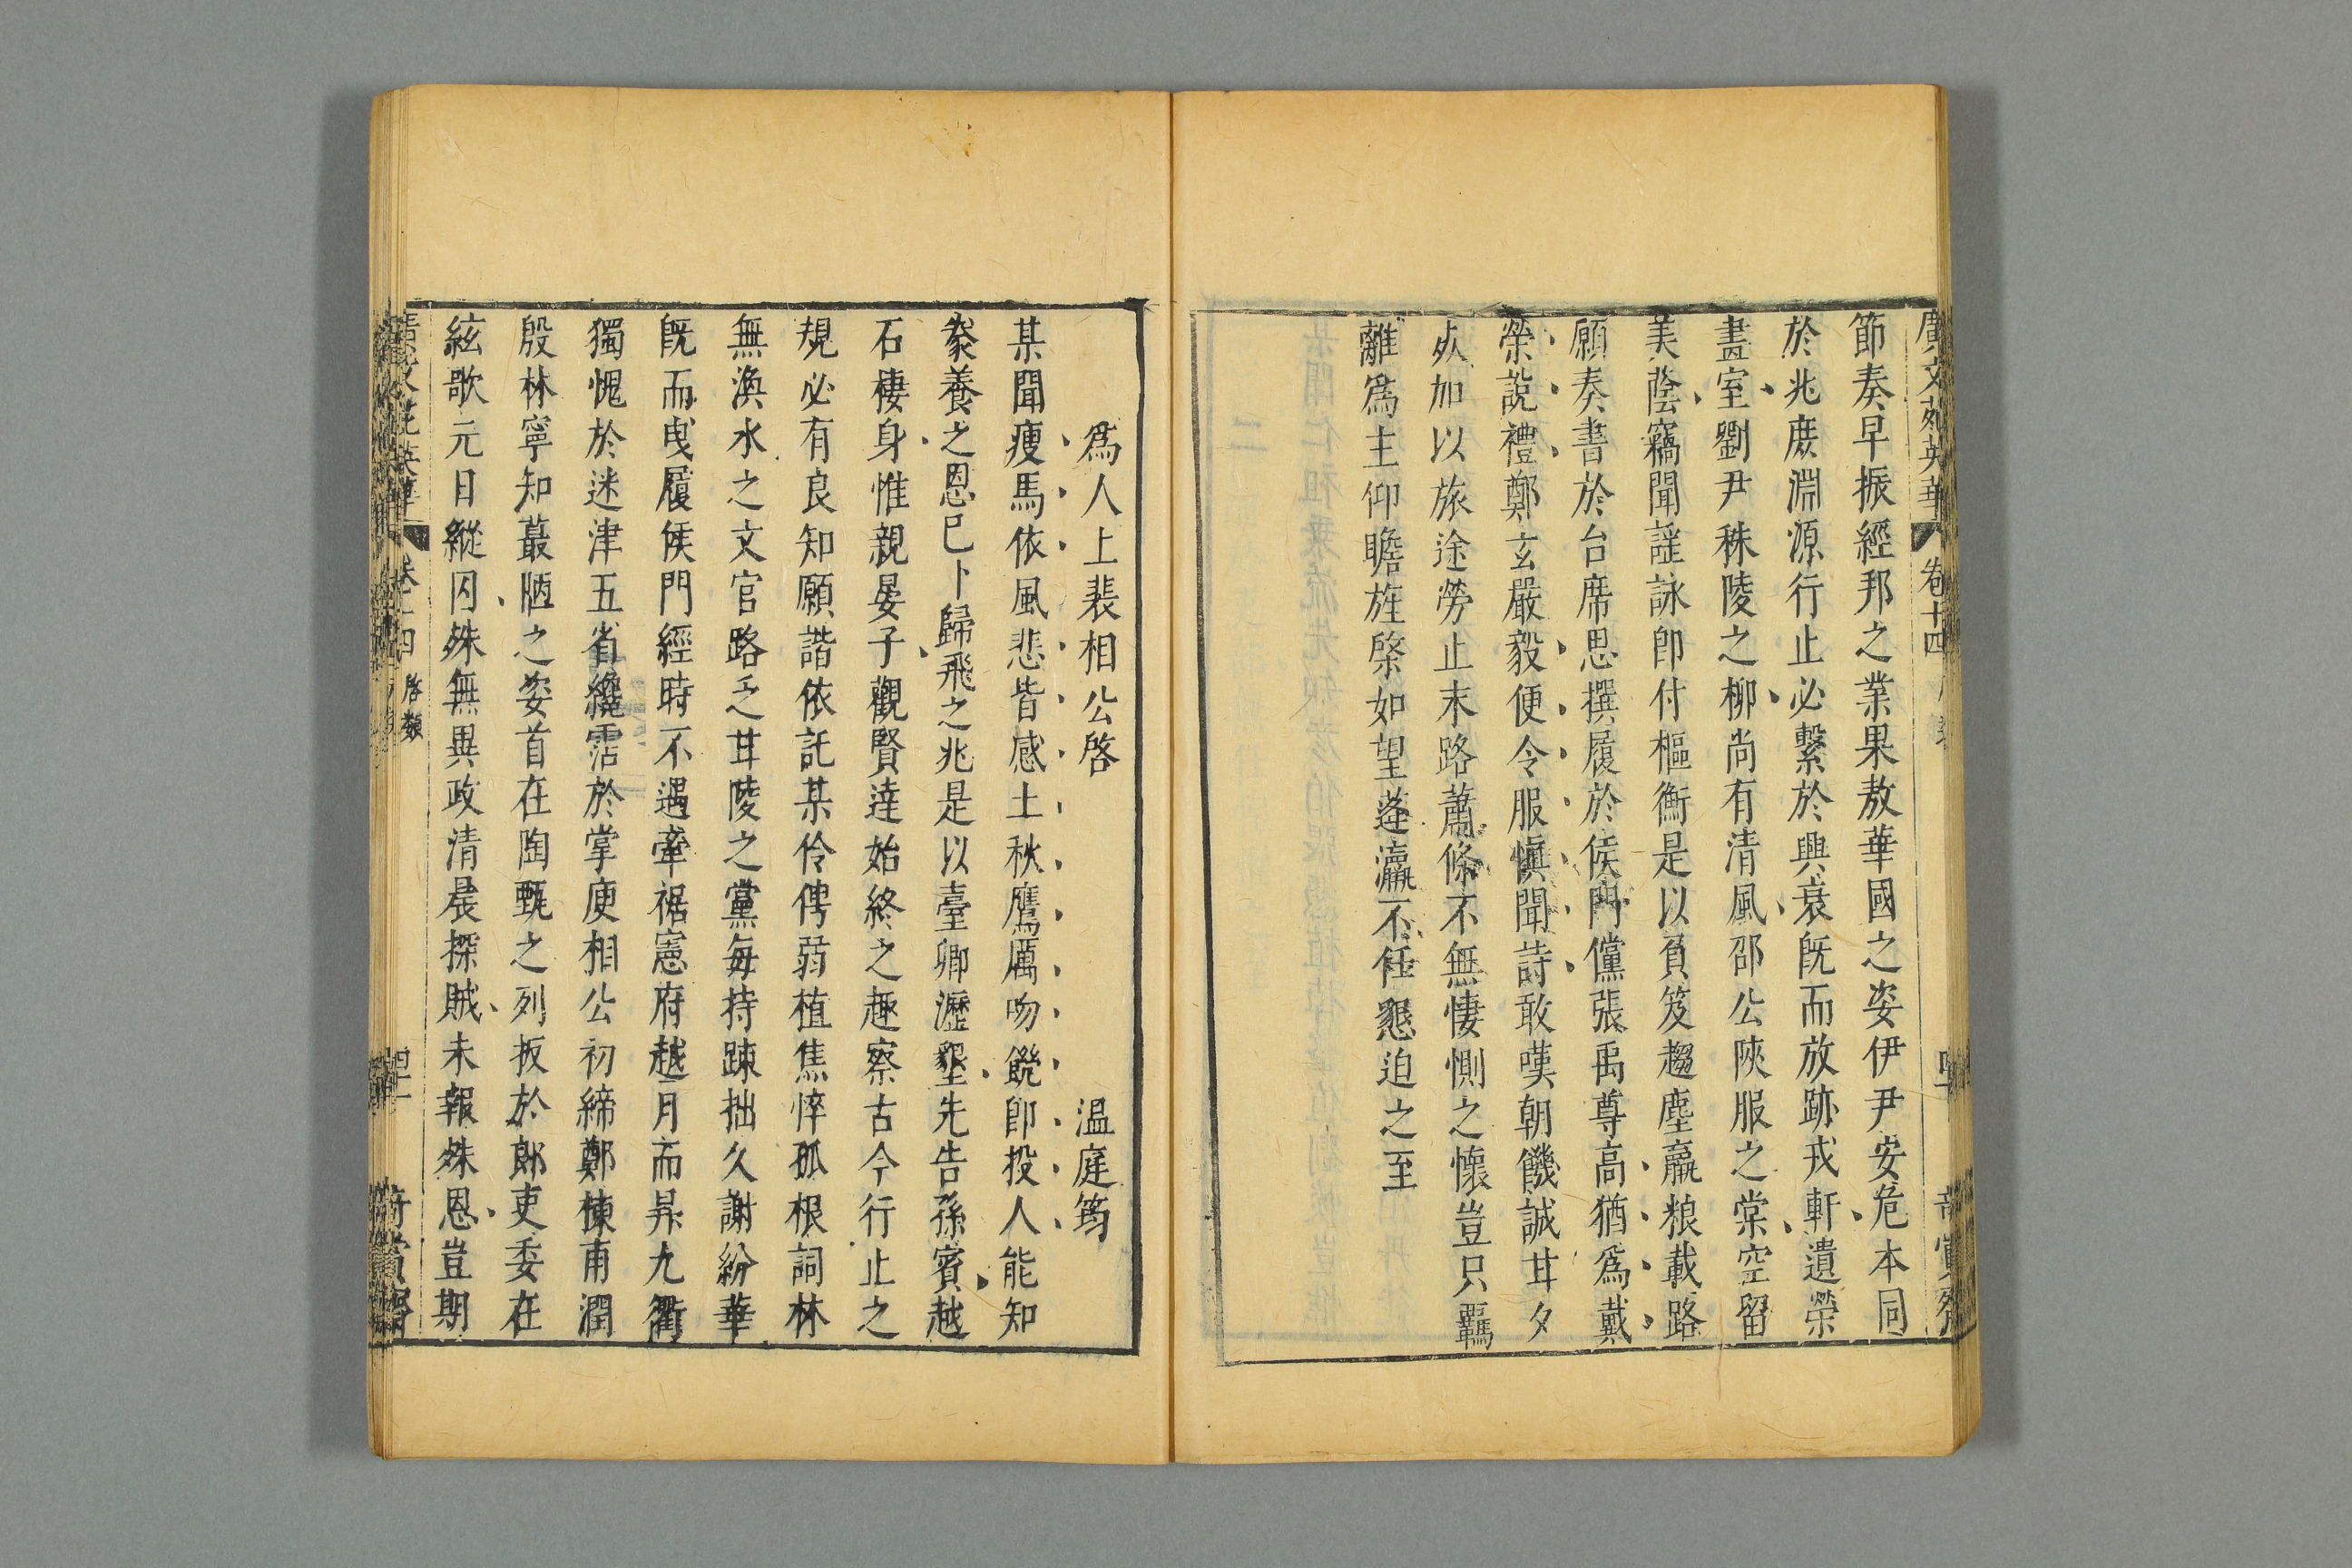 廣文苑英華 卷十四
節奏早振經邦之業果敖華國之姿伊尹安危本同
於兆庶淵源行止必繫於興衰旣而放跡戎軒遺榮
畫室劉尹秣陵之柳尚有清風邵公陝服之棠空留
美蔭竊聞謡詠卽付樞衡是以負笈趨塵羸粮載路
願奏書於台席思撰履於侯門儻張禹尊高猶爲戴
榮說禮鄭玄嚴毅便令服愼聞詩敢嘆朝饑誠甘夕
死加以旅途勞止末路蕭條不無悽惻之懷豈只羈
離爲主仰瞻旌棨如望蓬瀛不任懇迫之至
爲人上裴相公啓 温庭筠
某聞瘦馬依風悲皆感土秋鷹厲吻饑卽投人能知
豢養之恩已卜歸飛之兆是以臺卿瀝懇先告孫賓越
石棲身惟親晏子觀賢達始終之趣察古今行止之
規必有良知願諧依託某伶俜弱植焦悴孤根詞林
無渙水之文官路乏甘陵之黨每持踈拙久謝紛華
旣而曳履侯門經時不遇牽裾憲府越月而昇九衢
獨愧於迷津五省纔霑於掌庾相公初締鄭棟甫潤
殷林寧知蕞陋之姿首在陶甄之列扳於郎吏委在
絃歌元日縱囚殊無異政清晨探賊未報殊恩豈期
卷十四 啓類